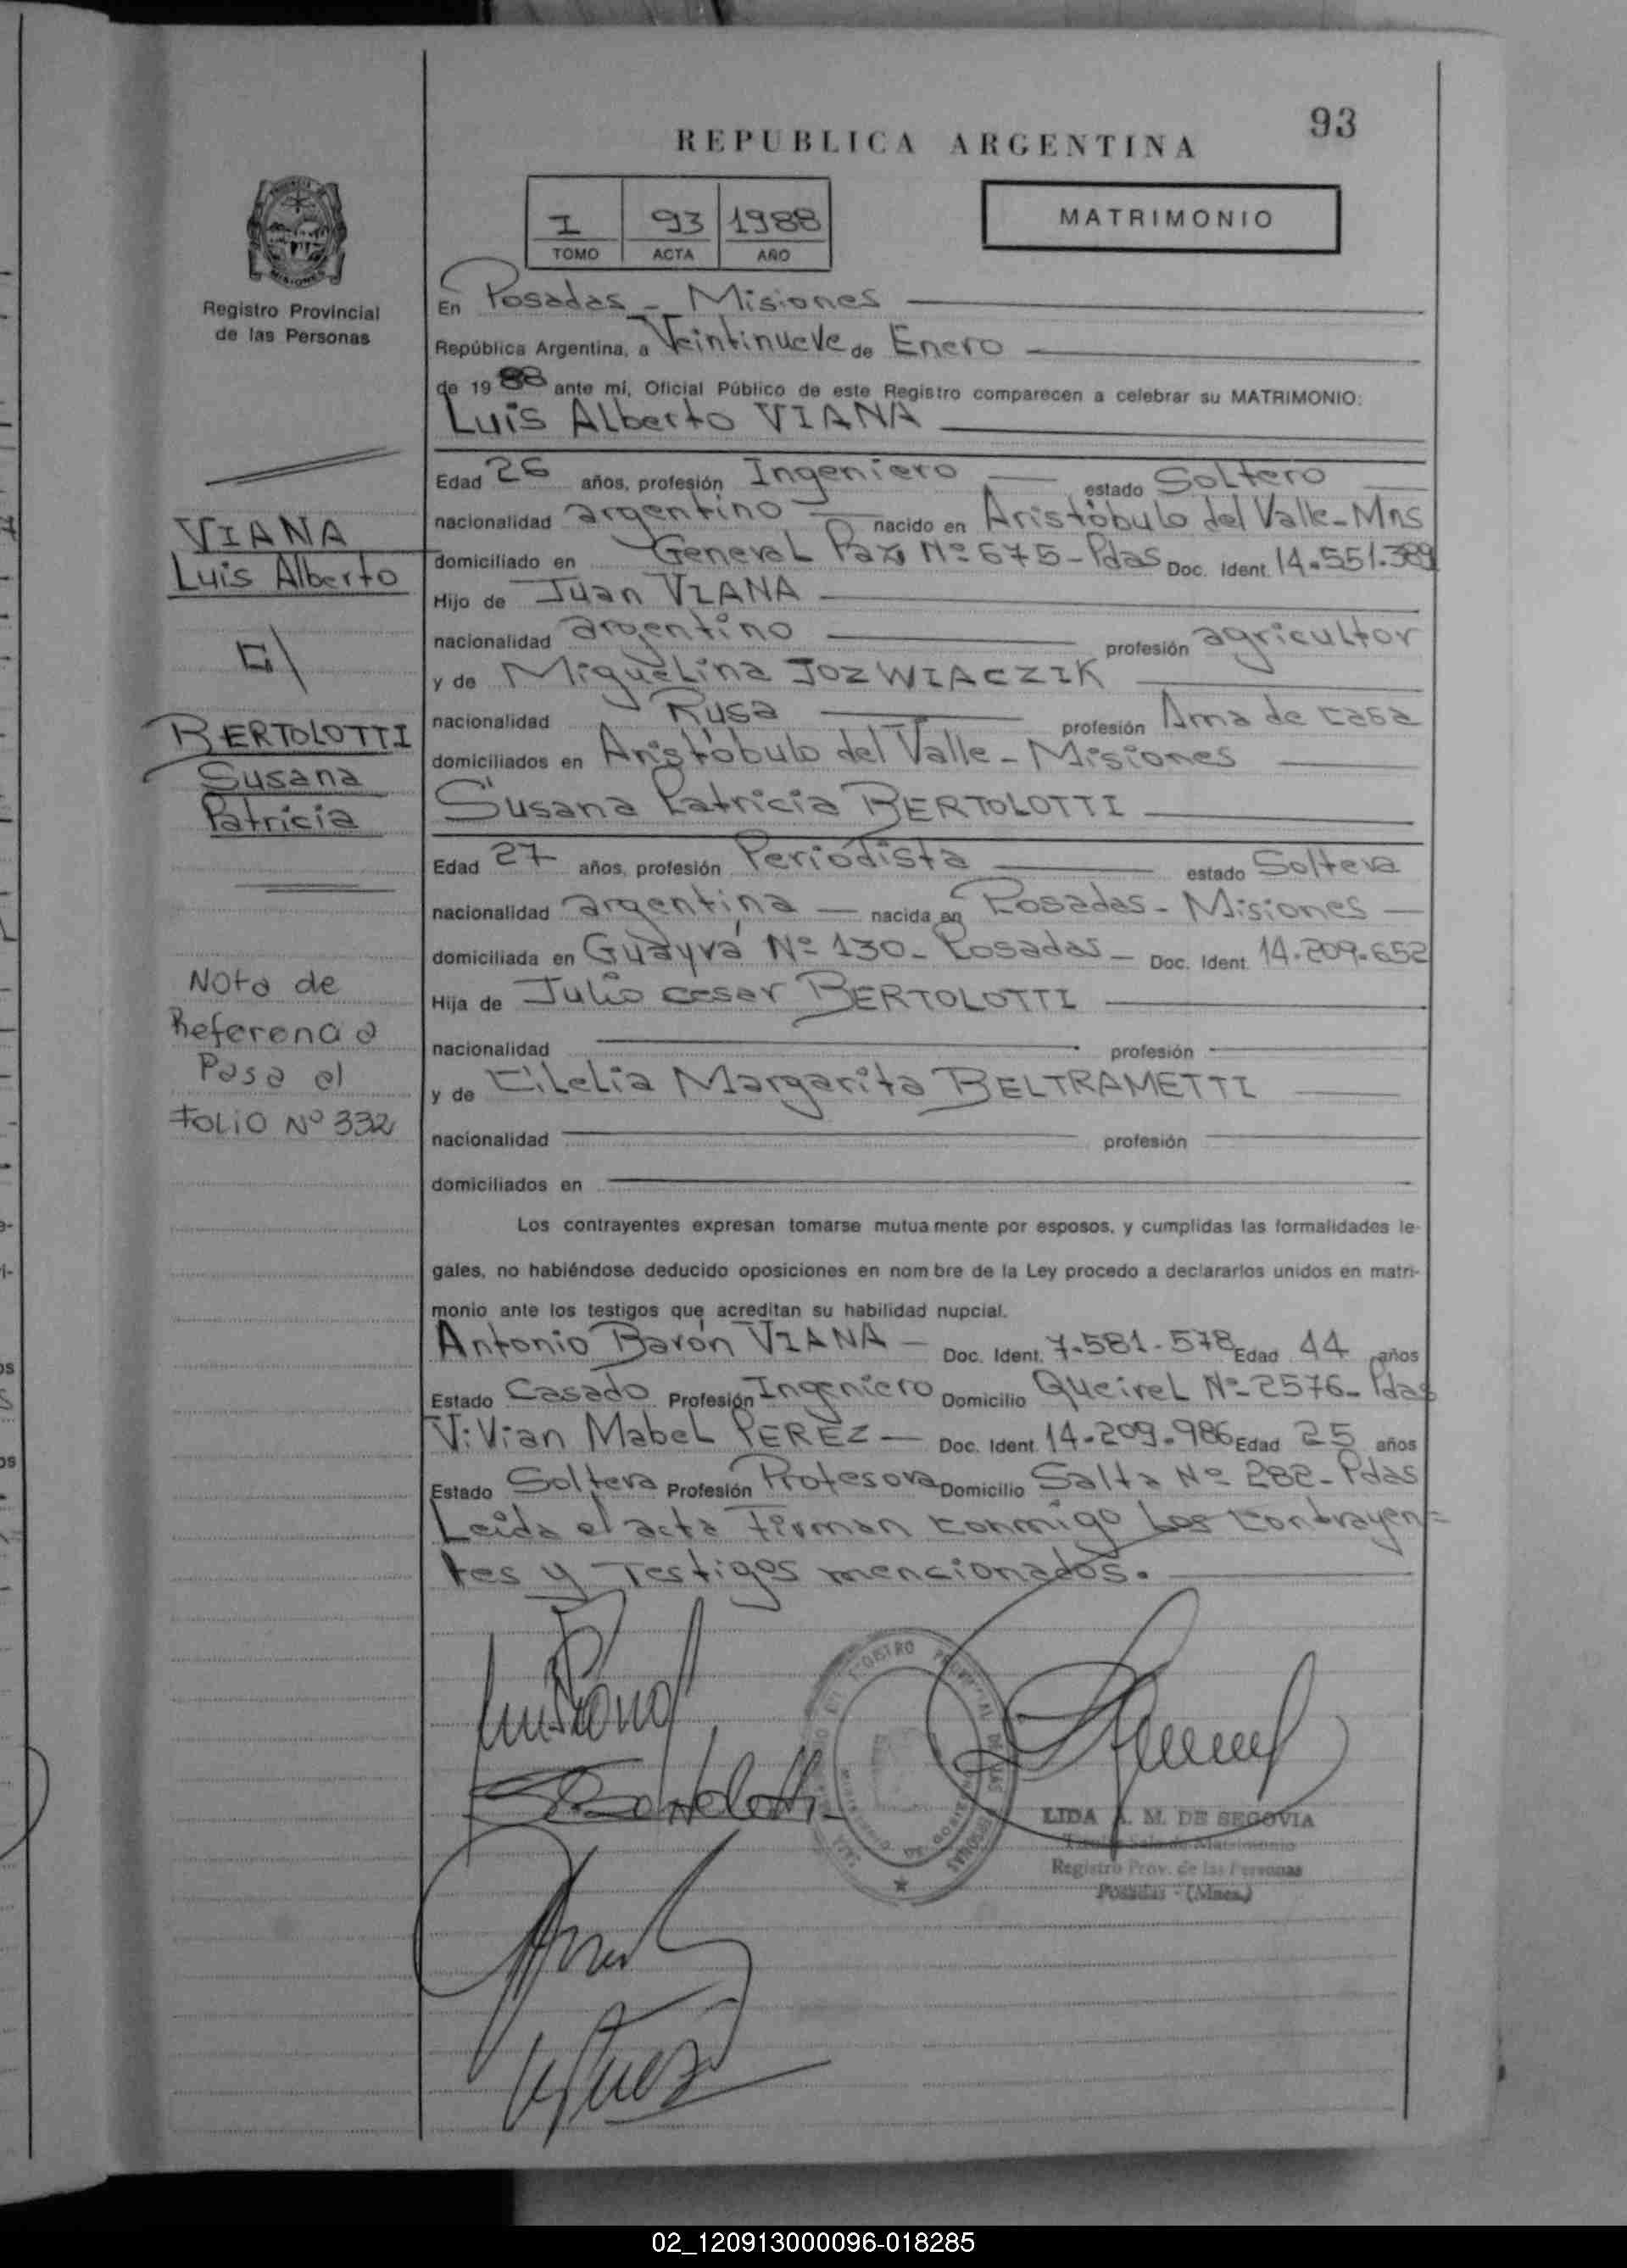 93
REPUBLICA ARGENTINA
I 93 1988
TOMO ACTA AÑO
MATRIMONIO
Registro Provincial
de las Personas
En Posadas - Misiones
República Argentina, a Veintinueve de Enero
de 1988 ante mí, Oficial Público de este Registro comparecen a celebrar su MATRIMONIO:
Luis Alberto VIANA
Edad 26 años, profesión Ingeniero estado Soltero
nacionalidad argentino nacido en Aristóbulo del Valle - Mns
domiciliado en General Paz Nº 675 - Pdas Doc. Ident. 14.551.389
Hijo de Juan VIANA
nacionalidad argentino profesión agricultor
y de Miguelina JOZWIACZIK
nacionalidad Rusa profesión Ama de casa
domiciliados en Aristóbulo del Valle - Misiones
Susana Patricia BERTOLOTTI
Edad 27 años, profesión Periodista estado Soltera
nacionalidad argentina nacida en Posadas - Misiones
domiciliada en Guayrá Nº 130 - Posadas - Doc. Ident. 14.209.652
Hija de Julio cesar BERTOLOTTI
nacionalidad profesión
y de Margarita BELTRAMETTI
nacionalidad profesión
domiciliados en
Los contrayentes expresan tomarse mutuamente por esposos, y cumplidas las formalidades le-
gales, no habiéndose deducido oposiciones en nombre de la Ley procedo a declararlos unidos en matri-
monio ante los testigos que acreditan su habilidad nupcial.
Antonio Barón VIANA - Doc. Ident. 7.581.578 Edad 44 años
Estado Casado Profesión Ingeniero Domicilio Queirel Nº 2576 - Pdas
Vivian Mabel PEREZ - Doc. Ident. 14.209.986 Edad 25 años
Estado Soltera Profesión Profesora Domicilio Salta Nº 282 - Pdas
Leida el acta Firman conmigo los contrayen=
tes y Testigos mencionados.
VIANA
Luis Alberto
c/
BERTOLOTTI
Susana
Patricia
Nota de
Referencia
Pasa al
FOLIO Nº 332
LIDA A. M. DE SEGOVIA
Titular Sala de Matrimonio
Registro Prov. de las Personas
Posadas - (Mnes.)
02_120913000096-018285